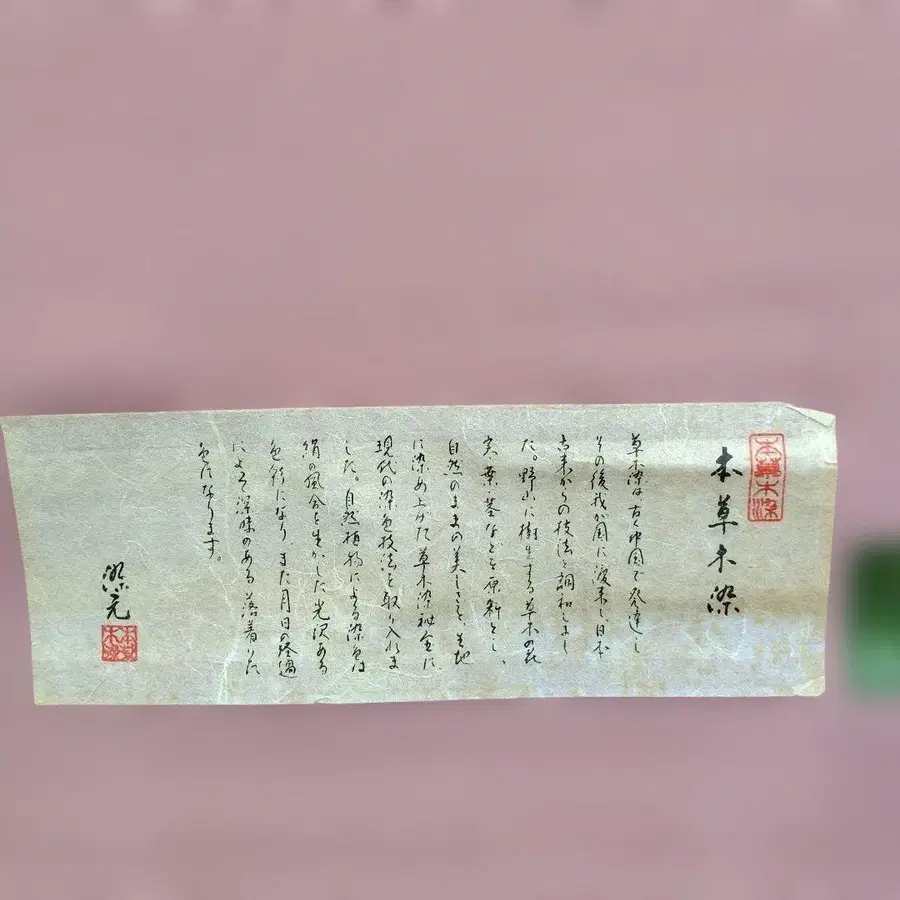 本草木染
本草木染
草木染は、古く中国で発達し
その後我が国に渡来し、日本
古来からの技法と調和しまし
た。野山に樹生する草木の花
実、葉、茎などを原料とし、
自然のままの美しさを、生地
に染め上げた草木染秘伝に
現代の染色技法を取り入れま
した。自然植物による染色は
絹の風合を生かした光沢ある
色彩になり、また月日の経過
によって深味のある落着いた
色になります。
染元